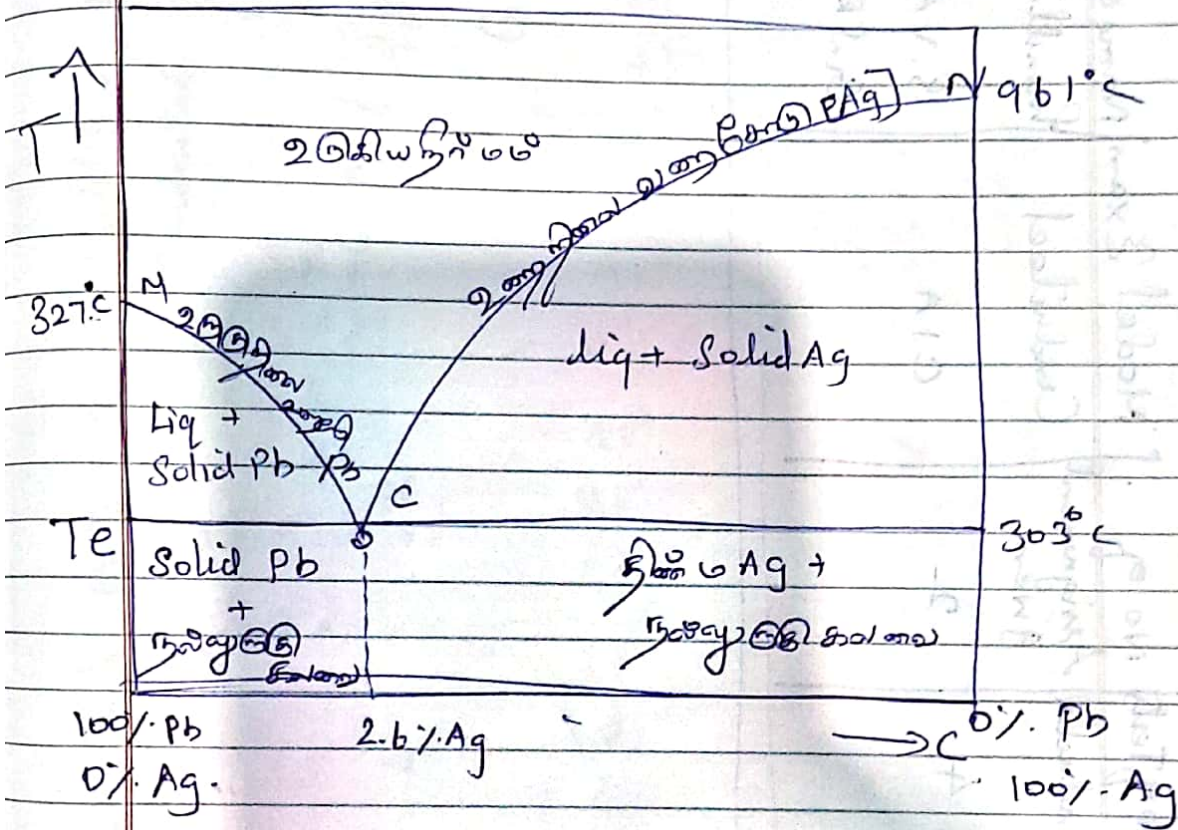 T
உருகிய நீர்மம்
உறை நிலை வளை கோடு [Ag]
N 961°C
327°C
M
உருகு நிலை
Pb
Liq +
Solid Pb
Liq + Solid Ag
C
Te
303°C
Solid Pb
+
நல்லுருகு
கலவை
திண்ம Ag +
நல்லுருகு கலவை
100% Pb
0% Ag.
2.6% Ag
→ C
0% Pb
100% Ag